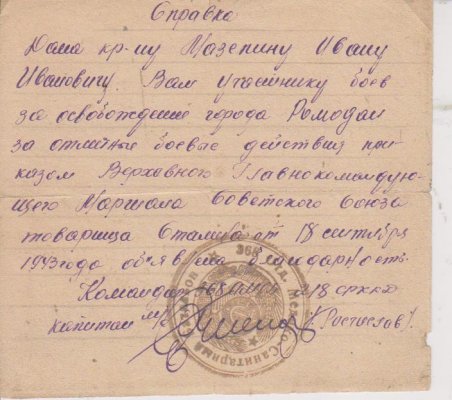 Справка
Дана кр-цу Мазепину Ивану
Ивановичу. Вам участнику боев
за освобождение города Ромодан
за отличные боевые действия при-
казом Верховного Главнокомандую-
щего Маршала Советского Союза
товарища Сталина от 18 сентября
1943 года объявлена благодарность.
Командир
капитан м/с (Ростислов).